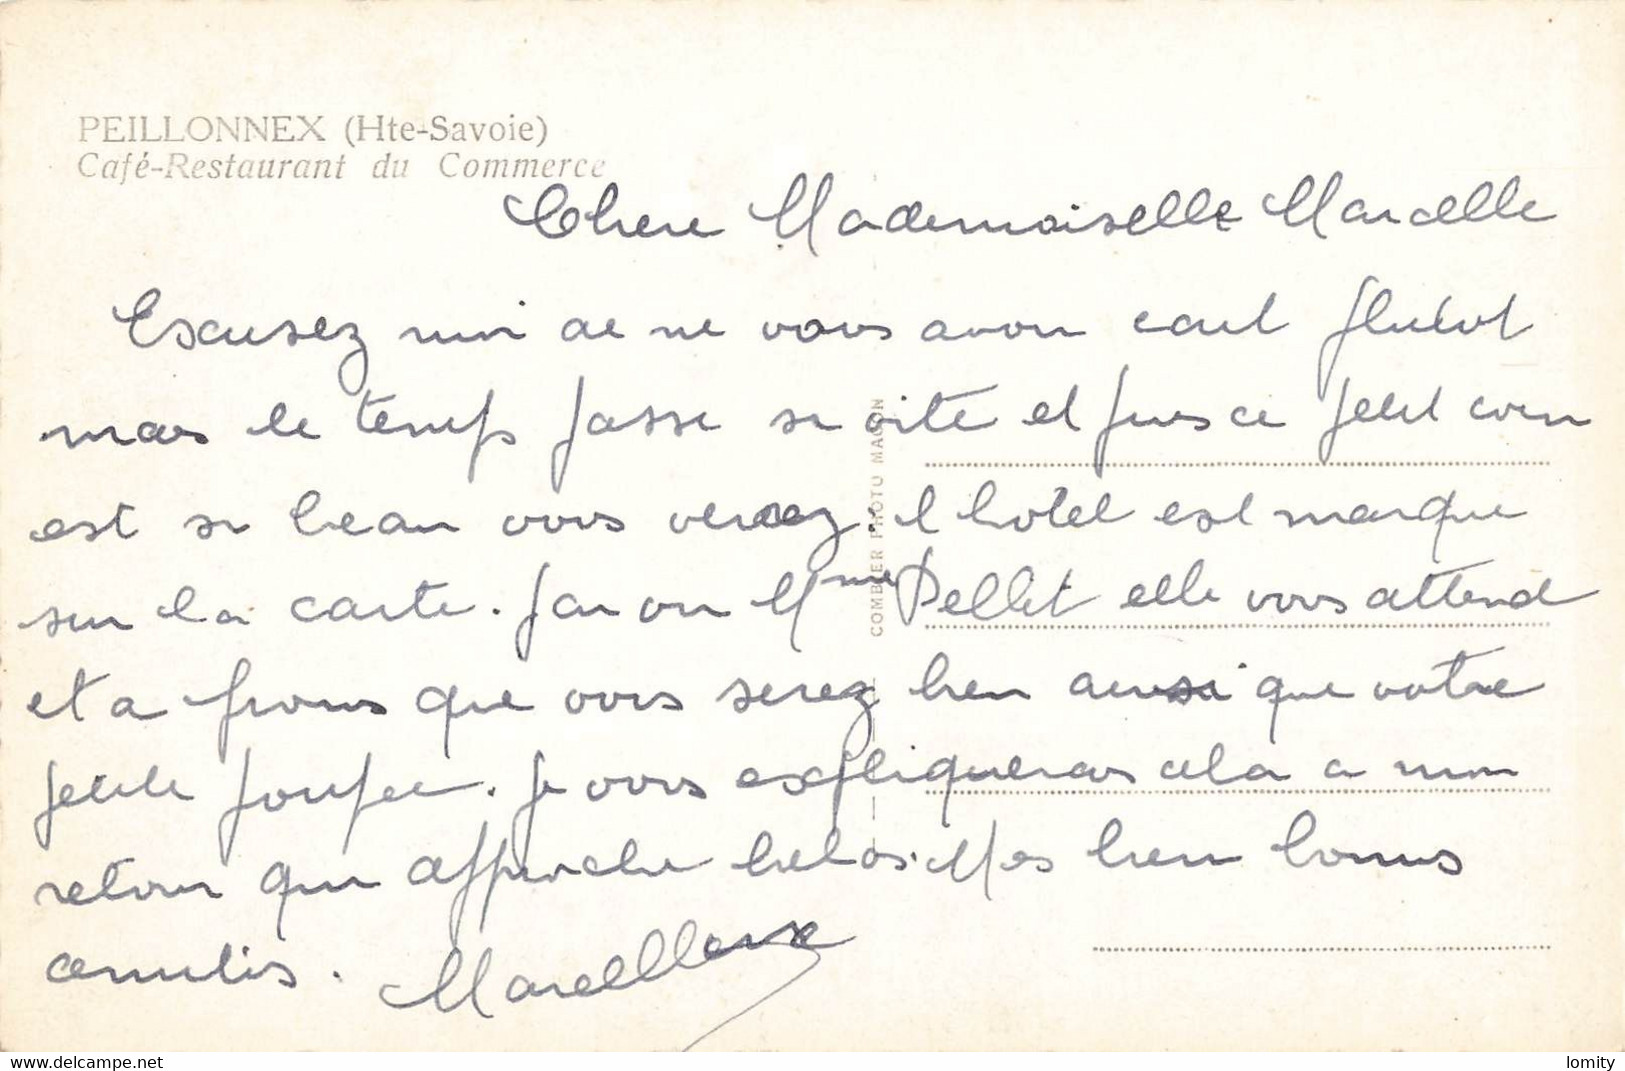 PEILLONNEX (Hte-Savoie)
Café-Restaurant du Commerce
Chere Mademoiselle Marcelle
Excusez moi de ne vous avoir ecrit plutot
mais le temps passe si vite et puis ce petit coin
est si beau vous verrez l hotel est marque
sur la carte. J'ai vu Mme Pellet elle vous attend
et a promis que vous serez bien ainsi que votre
petite poupee. Je vous expliquerais cela a mon
retour qui approche helas. Mes bien bonnes
amities.
COMBIER PHOTO MACON
https://www.delcampe.net
lomity